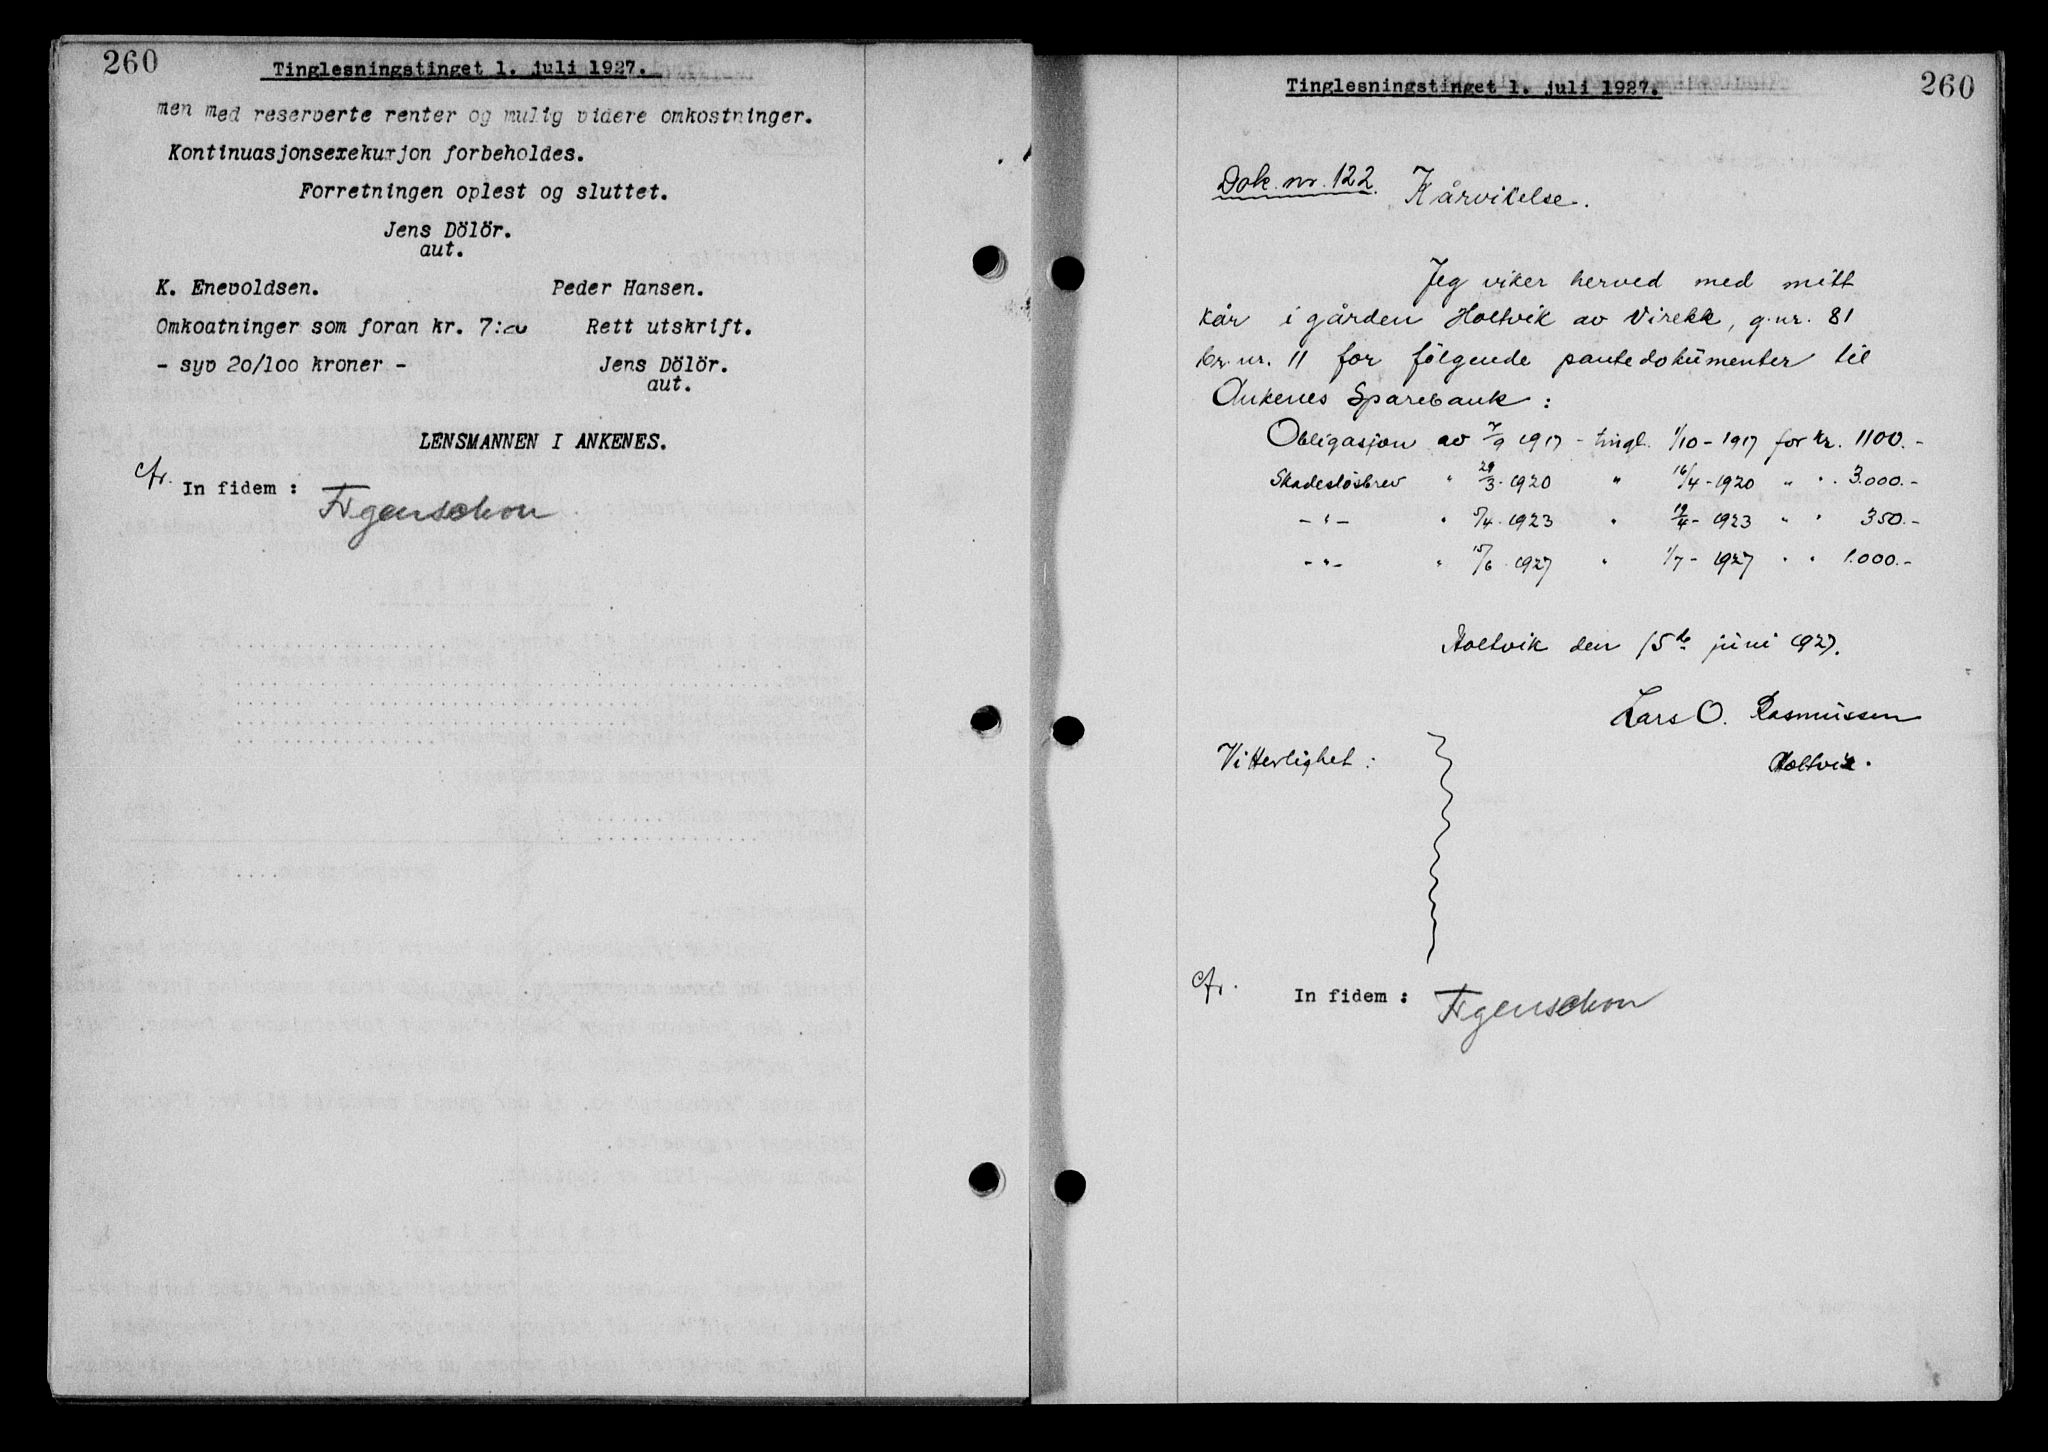 260
Tinglesningstinget 1. juli 1927.
men med reserverte renter og mulig videre omkostninger.
Kontinuasjonsexekurjon forbeholdes.
Forretningen oplest og sluttet.
Jens Dölör.
aut.
K. Enevoldsen. Peder Hansen.
Omkoatninger som foran kr. 7:20 Rett utskrift.
- syv 20/100 kroner - Jens Dölör.
aut.
LENSMANNEN I ANKENES.
In fidem :
260
Tinglesningstinget 1. juli 1927.
Dok. nr. 122. Kårvikelse.
Jeg viker herved med mitt
kår i gården Holtvik av Virekk, g.nr. 81
br.nr. 11 for følgende pantedokumenter til
Ankenes Sparebank :
Obligasjon av 7/9 1917 - tingl. 1/10 - 1917 for kr. 1100.-
Skadesløsbrev " 29/3 - 1920 " 16/4 - 1920 " " 3.000.-
- " - " 5/4 - 1923 " 19/4 - 1923 " " 350.-
- " - " 15/6 - 1927 " 1/7 - 1927 " " 1.000.-
Holtvik den 15de juni 1927.
Lars O. Rasmussen
Holtvik.
Vitterlighet :
In fidem :